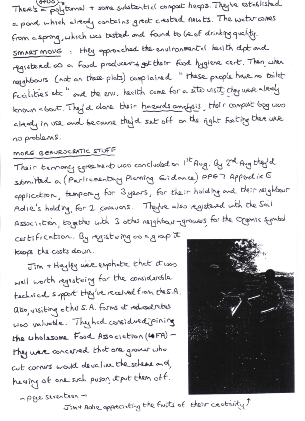 There's a polytunnel + some substantial compost heaps. They've established
a pond which already contains great crested newts. The water comes
from a spring, which was tested and found to be of drinking quality.
SMART MOVE : they approached the environmental health dept and
registered as a food producer & get their food hygiene cert. Then when
neighbours (not on these plots) complained, "these people have no toilet
facilities etc" and the env. health came for a site visit, they were already
known about. They'd done their hazards analysis, their compost bog was
already in use and because they'd set off on the right footing there were
no problems.
MORE BEAUROCRATIC STUFF
Their tenancy agreement was concluded on 1st Aug. By 2nd Aug they'd
submitted an (Parliamentary Planning Guidance) PPG7 Appendix E
application, temporary for 3 years, for their holding and their neighbour
Adie's holding, for 2 caravans. They've also registered with the Soil
Association, together with 3 other neighbour-growers, for the Organic Symbol
certification. By registering as a group it
keeps the costs down.
Jim + Hayley were emphatic that it was
well worth registering for the considerable
technical support they've received from the S.A.
Also, visiting other S.A. farms at reduced rates
was valuable. They had considered joining
the Wholesome Food Association (WFA) -
they were concerned that one grower who
cut corners would devalue the scheme and,
hearing of one such person, it put them off.
- page seventeen -
Jim + Adie, appreciating the fruits of their creativity ↑